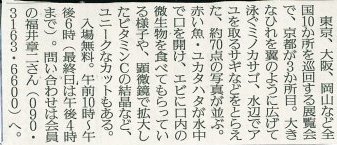 東京、大阪、岡山など全
国10か所を巡回する展覧会
で、京都が3か所目。大き
なひれを翼のように広げて
泳ぐミノカサゴ、水辺でア
ユを取るサギなどをとらえ
た、約70点の写真が並ぶ。
赤い魚・ユカタハタが水中
で口を開け、エビに口内の
微生物を食べてもらってい
る様子や、顕微鏡で拡大し
たビタミンCの結晶など、
ユニークなカットもある。
入場無料。午前10時〜午
後6時(最終日は午後4時
まで)。問い合わせは会員
の福井章二さん(090・
3163・6600)へ。